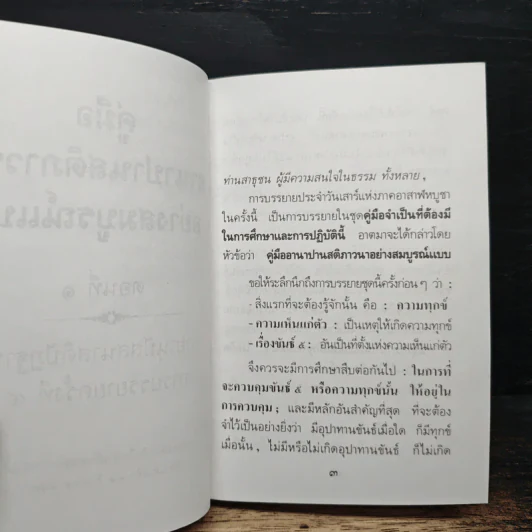 ท่านสาธุชน ผู้มีความสนใจในธรรม ทั้งหลาย,
การบรรยายประจำวันเสาร์แห่งภาคอาสาฬหบูชา
ในครั้งนี้ เป็นการบรรยายในชุดคู่มือจำเป็นที่ต้องมี
ในการศึกษาและการปฏิบัตินี้ อาตมาจะได้กล่าวโดย
หัวข้อว่า คู่มืออานาปานสติภาวนาอย่างสมบูรณ์แบบ
ขอให้ระลึกนึกถึงการบรรยายชุดนี้ครั้งก่อนๆ ว่า :
- สิ่งแรกที่จะต้องรู้จักนั้น คือ : ความทุกข์
- ความเห็นแก่ตัว : เป็นเหตุให้เกิดความทุกข์
- เรื่องขันธ์ ๕ : อันเป็นที่ตั้งแห่งความเห็นแก่ตัว
จึงควรจะมีการศึกษาสืบต่อกันไป : ในการที่
จะควบคุมขันธ์ ๕ หรือความทุกข์นั้น ให้อยู่ใน
การควบคุม; และมีหลักอันสำคัญที่สุด ที่จะต้อง
จำไว้เป็นอย่างยิ่งว่า มีอุปาทานขันธ์เมื่อใด ก็มีทุกข์
เมื่อนั้น, ไม่มีหรือไม่เกิดอุปาทานขันธ์ ก็ไม่เกิด
๓
คู่มือ
อานาปานสติภาวนา
อย่างสมบูรณ์แบบ
ตอนที่ ๑